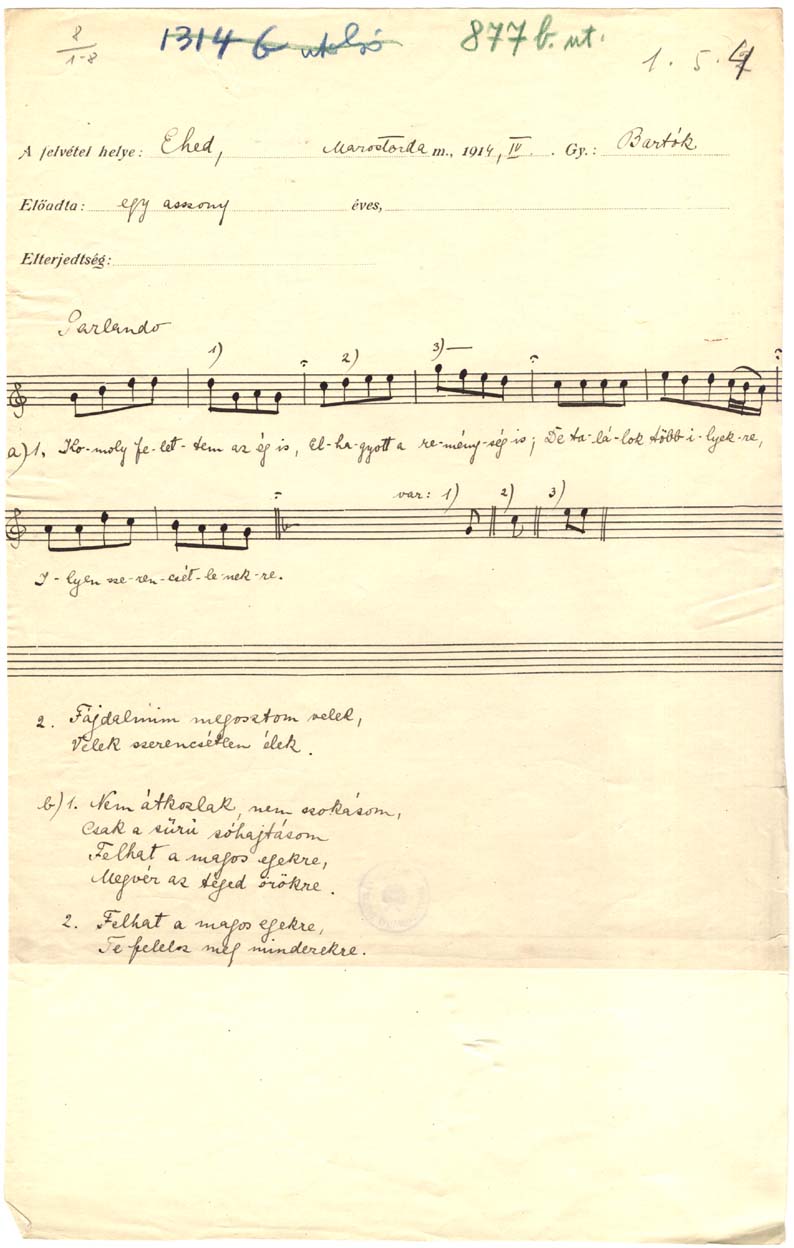 8/1-8
1314 b utolsó
877 b. ut.
1. 5. 4
A felvétel helye: Ehed, Marostorda m., 1914, IV. Gy.: Bartók
Előadta: egy asszony éves,
Elterjedtség:
Parlando
1) 2) 3)
a) 1. Ko-moly fe-let-tem az ég is, El-ha-gyott a re-mény-ség is; De ta-lá-lok több i-lyek-re,
var: 1) 2) 3)
I-lyen sze-ren-csét-le-nek-re.
2. Fájdalmim megosztom velek,
Velek szerencsétlen élek.
b) 1. Nem átkozlak, nem szokásom,
Csak a sürü sóhajtásom
Felhat a magos egekre,
Megvér az téged örökre.
2. Felhat a magos egekre,
Te felelsz meg mindezekre.